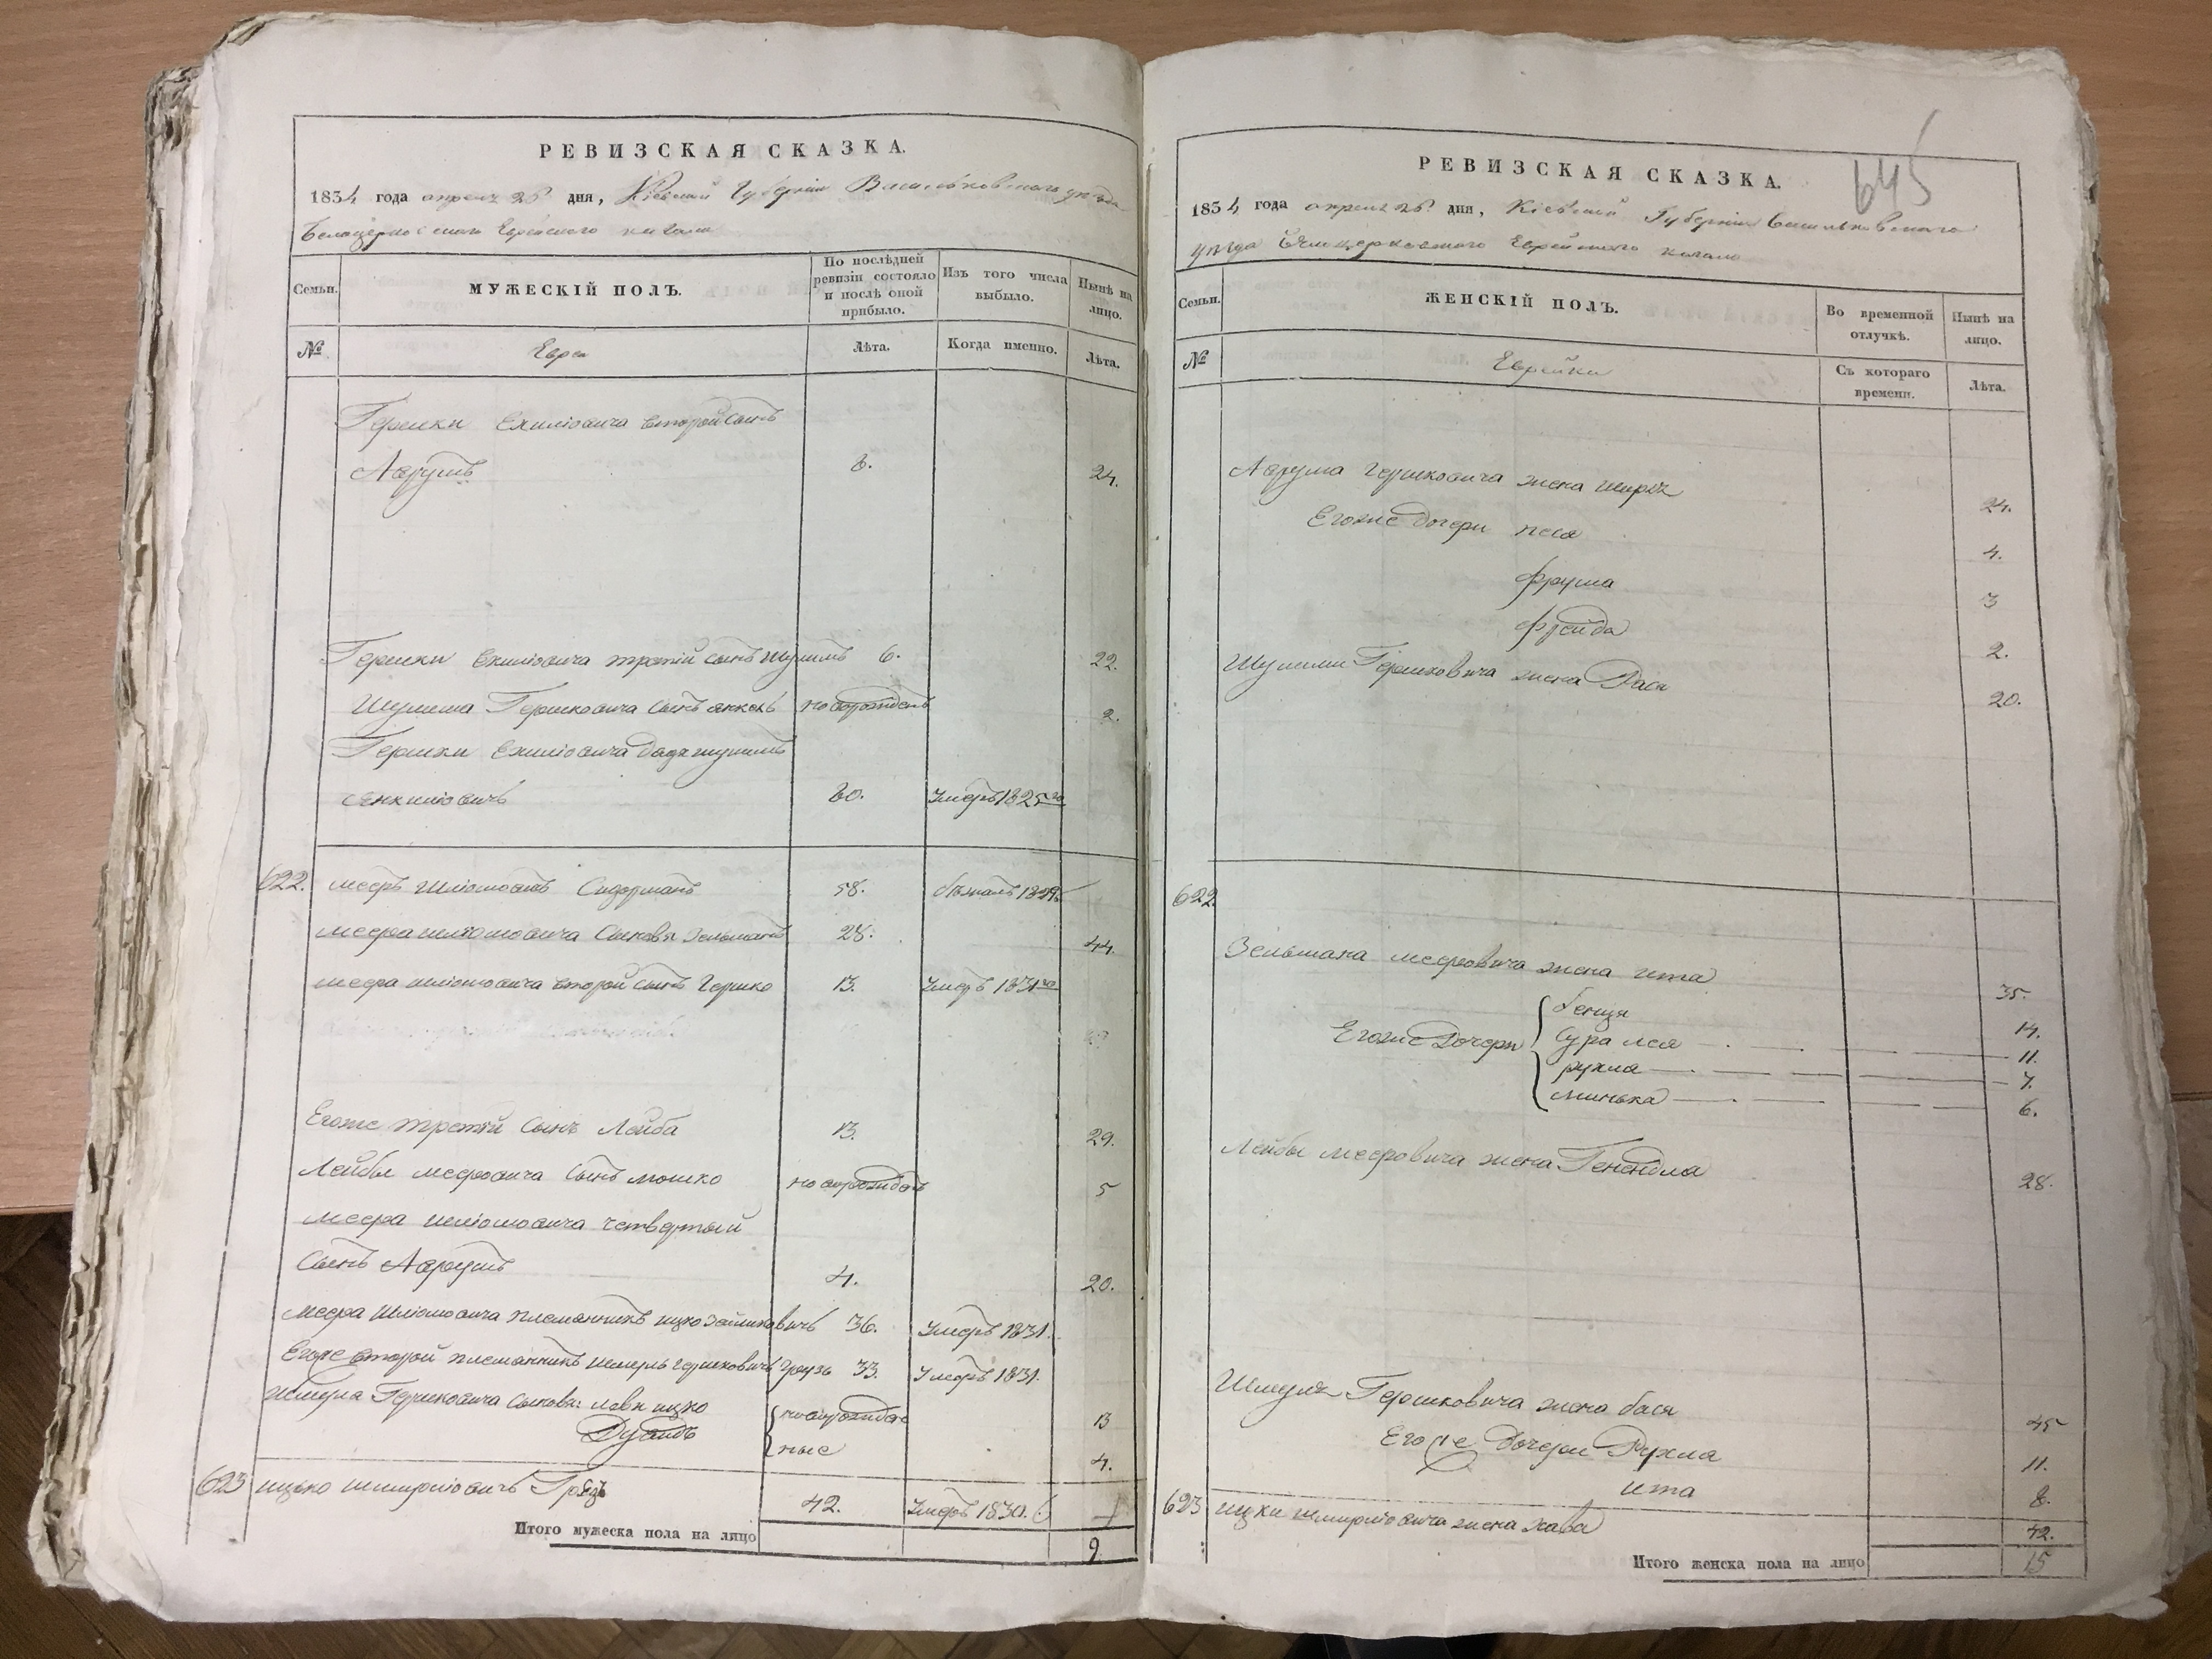 РЕВИЗСКАЯ СКАЗКА.
1834 года апреля 25 дня, Кіевской Губерніи Васильковского уезда
Белоцерковского Еврейского кагала
Семьи. МУЖЕСКІЙ ПОЛЪ. По послѣдней ревизіи состояло и послѣ оной прибыло. Изъ того числа выбыло. Нынѣ на лицо.
№ Евреи Лѣта. Когда именно. Лѣта.
Гершки Ехиліовича второй сынъ
Аврумъ 8. 24.
Гершки Ехиліовича третій сынъ Шулимъ 6. 22.
Шулима Гершковича сынъ Янкель новорожденъ 2.
Гершки Ехиліовича дядя Шулимъ
Янкиліовичъ 60. Умеръ 1825го
622. Мееръ Шліомовичъ Сидерманъ 58. бѣжалъ 1829
Меера Шліомовича сыновья Зельманъ 28. 44.
Меера Шліомовича второй сынъ Гершко 13. Умеръ 1831го
Егоже третій сынъ Лейба 13. 29.
Лейбы Мееровича сынъ Мошко новорожденъ 5
Меера Шліомовича четвертый
сынъ Аврумъ 4. 20.
Меера Шліомовича племянникъ Ицко Зейликовичъ 36. Умеръ 1831.
Егоже второй племянникъ Шмуль Гершковичъ 33. Умеръ 1831.
Шмуля Гершковича сыновья: Леви Ицко новорожден 13
Дувидъ ные 4.
623 Ицко Шмиріовичъ 42. Умеръ 1830.
Итого мужеска пола на лицо 9.
645
РЕВИЗСКАЯ СКАЗКА.
1834 года апреля 25 дня, Кіевской Губерніи Васильковского
уезда Белоцерковского Еврейского кагала
Семьи. ЖЕНСКІЙ ПОЛЪ. Во временной отлучкѣ. Нынѣ на лицо.
№ Еврейки Съ котораго времени. Лѣта.
Аврума Гершковича жена 24.
Егоже дочери Песя 4.
Фрума 3
Фрейда 2.
Шулима Гершковича жена Рася 20.
622.
Зельмана Мееровича жена Ита 35.
Егоже дочери Бенця 14.
Сура Лея 11.
Рухля 7.
Минька 6.
Лейбы Мееровича жена Генендля 28.
Шмуля Гершковича жена Бася 45
Егоже дочери Рухля 11.
Ита 8.
623 Ицки Шмиріовича жена Хава 42.
Итого женска пола на лицо 15